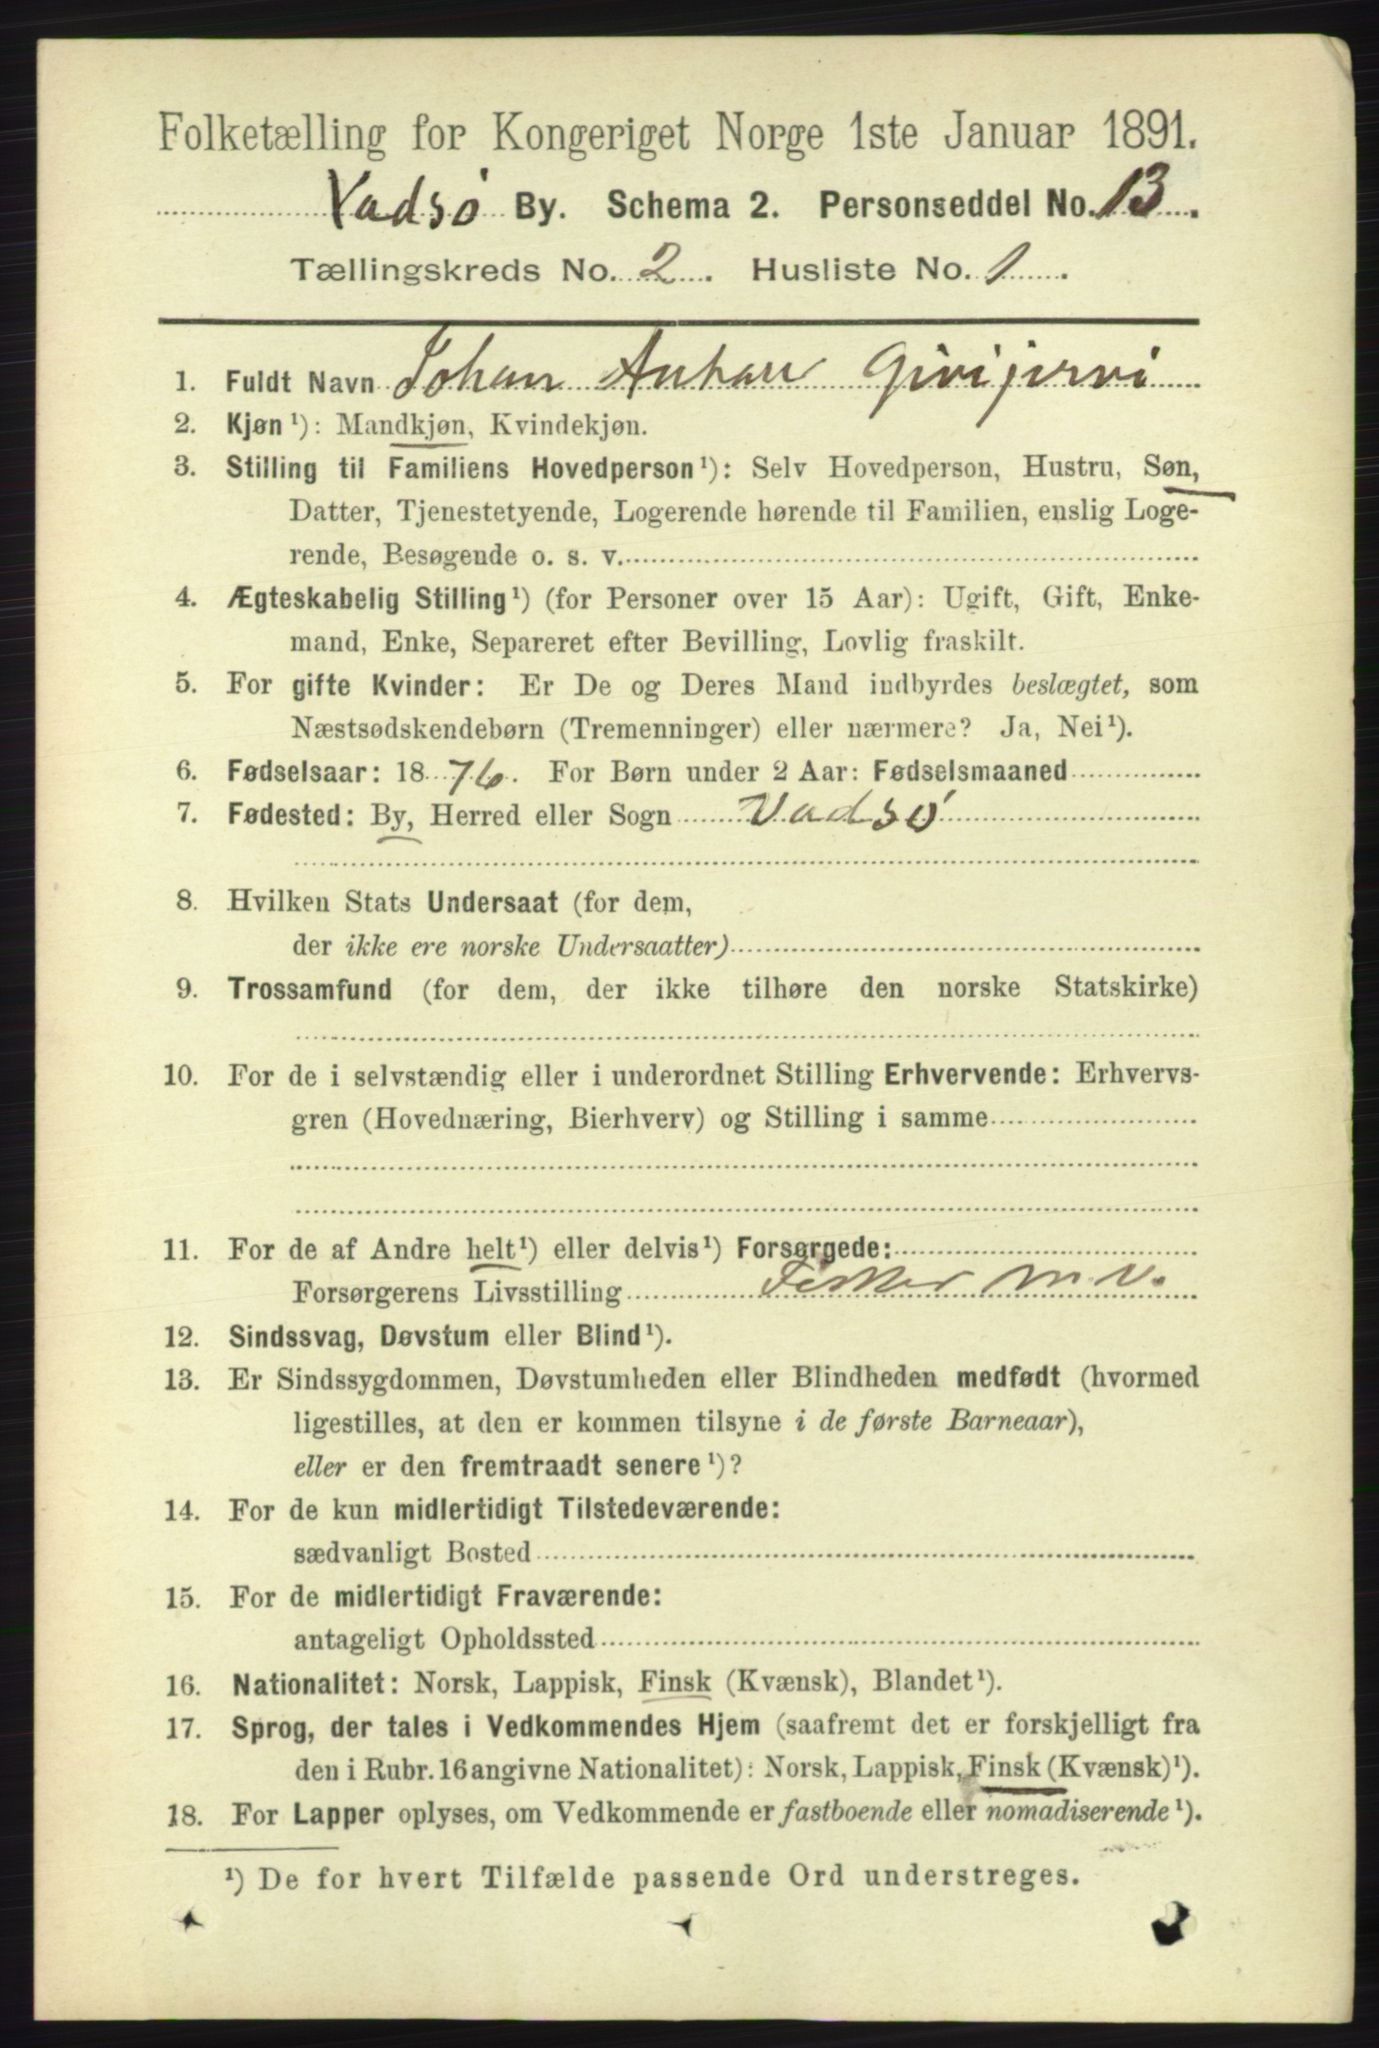 Folketælling for Kongeriget Norge 1ste Januar 1891.
Vadsø By. Schema 2. Personseddel No. 13.
Tællingskreds No. 2. Husliste No. 1.
1. Fuldt Navn Johan Anhan Givijervi
2. Kjøn ¹): Mandkjøn, Kvindekjøn.
3. Stilling til Familiens Hovedperson ¹): Selv Hovedperson, Hustru, Søn,
Datter, Tjenestetyende, Logerende hørende til Familien, enslig Loge-
rende, Besøgende o. s. v.
4. Ægteskabelig Stilling ¹) (for Personer over 15 Aar): Ugift, Gift, Enke-
mand, Enke, Separeret efter Bevilling, Lovlig fraskilt.
5. For gifte Kvinder: Er De og Deres Mand indbyrdes beslægtet, som
Næstsødskendebørn (Tremenninger) eller nærmere? Ja, Nei ¹).
6. Fødselsaar: 1876. For Børn under 2 Aar: Fødselsmaaned
7. Fødested: By, Herred eller Sogn Vadsø
8. Hvilken Stats Undersaat (for dem,
der ikke ere norske Undersaatter)
9. Trossamfund (for dem, der ikke tilhøre den norske Statskirke)
10. For de i selvstændig eller i underordnet Stilling Erhvervende: Erhvervs-
gren (Hovednæring, Bierhverv) og Stilling i samme
11. For de af Andre helt ¹) eller delvis ¹) Forsørgede:
Forsørgerens Livsstilling Fisker m. v.
12. Sindssvag, Døvstum eller Blind ¹).
13. Er Sindssygdommen, Døvstumheden eller Blindheden medfødt (hvormed
ligestilles, at den er kommen tilsyne i de første Barneaar),
eller er den fremtraadt senere ¹)?
14. For de kun midlertidigt Tilstedeværende:
sædvanligt Bosted
15. For de midlertidigt Fraværende:
antageligt Opholdssted
16. Nationalitet: Norsk, Lappisk, Finsk (Kvænsk), Blandet ¹).
17. Sprog, der tales i Vedkommendes Hjem (saafremt det er forskjelligt fra
den i Rubr. 16 angivne Nationalitet): Norsk, Lappisk, Finsk (Kvænsk) ¹).
18. For Lapper oplyses, om Vedkommende er fastboende eller nomadiserende ¹).
¹) De for hvert Tilfælde passende Ord understreges.